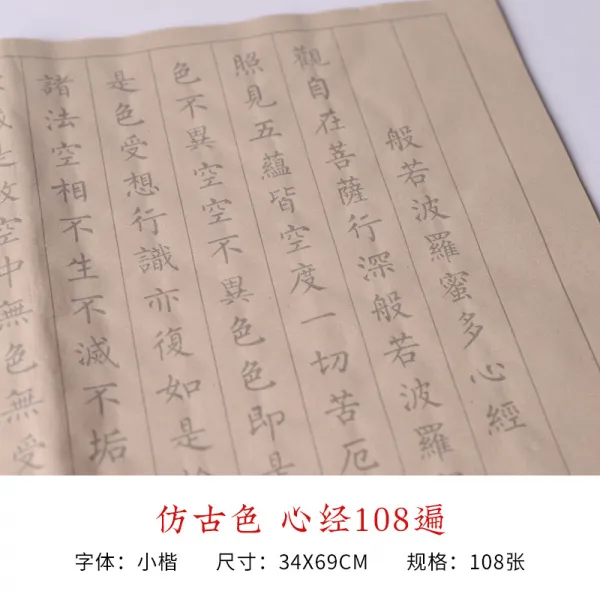 般若波羅蜜多心經
觀自在菩薩行深般若波羅
照見五蘊皆空度一切苦厄
色不異空空不異色色即是
是色受想行識亦復如是
諸法空相不生不滅不垢
是故空中無色無受
仿古色 心经108遍
字体：小楷 尺寸：34X69CM 规格：108张